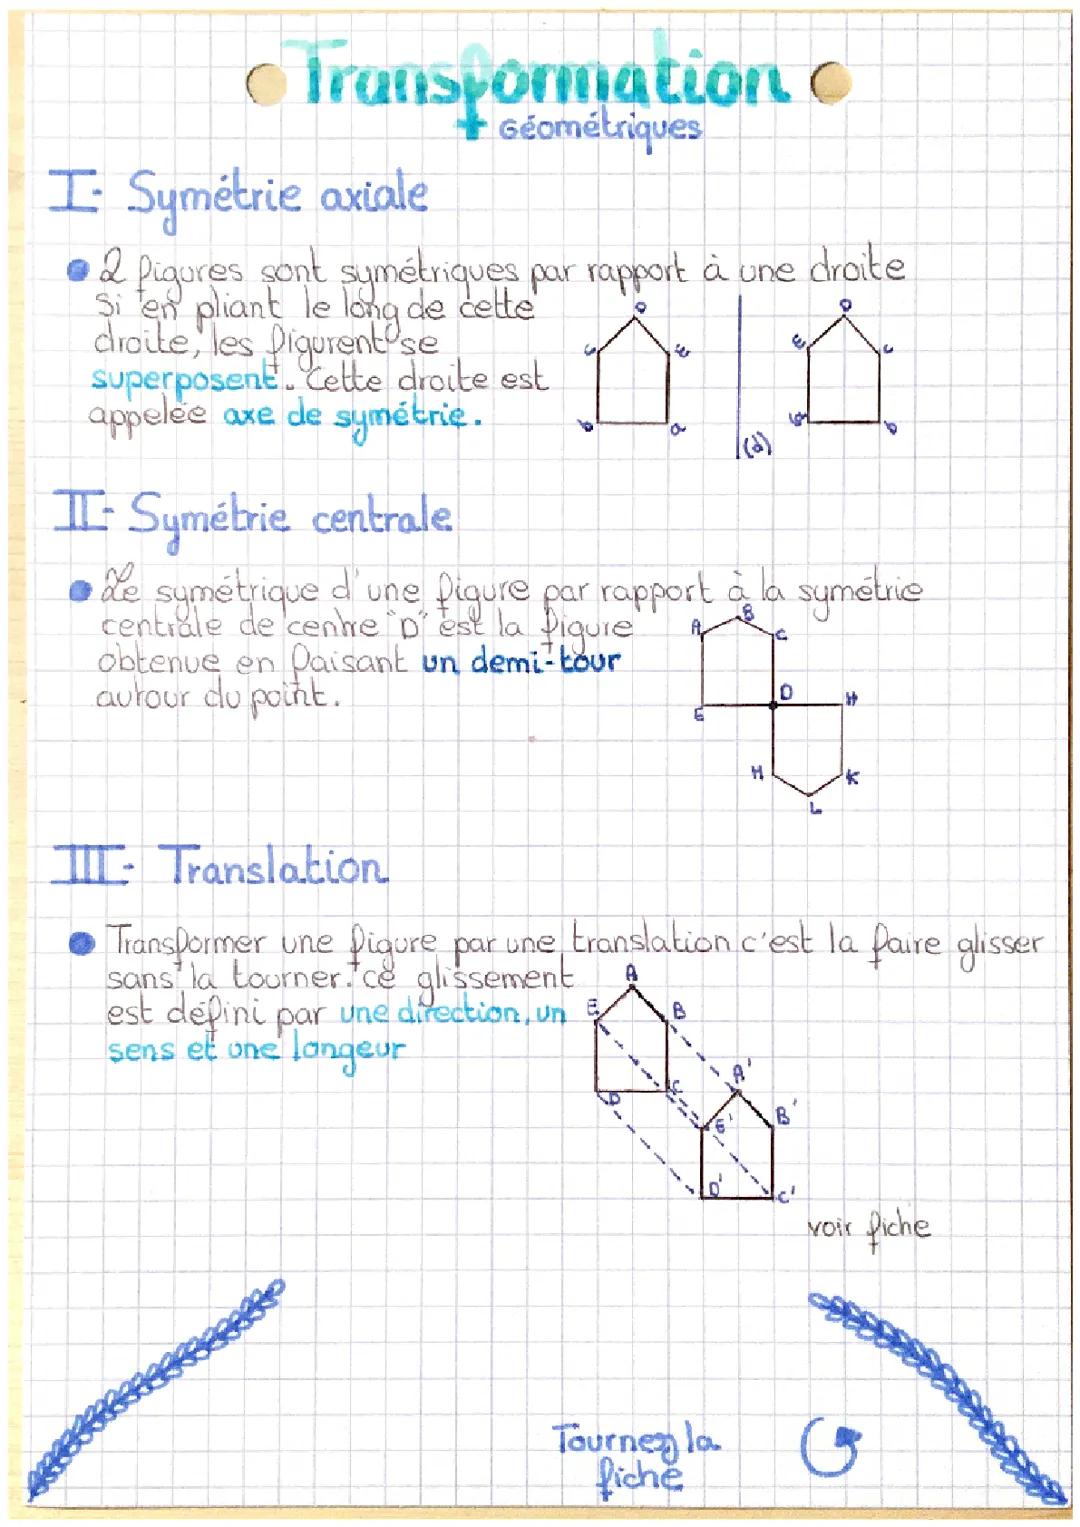 Transformation
Géométriques
I- Symétrie axiale
2 figures sont symétriques par rapport à une droite
si en pliant le long de cette
droite, les figurent se
superposent. Cette droite est
appelée axe de symétrie.
D D
C E E C
b a a b
(d)
II- Symétrie centrale
Le symétrique d'une figure par rapport à la symétrie
centrale de centre "D" est la figure
obtenue en faisant un demi-tour
autour du point.
A B C
E D H
H K
L
III- Translation
Transformer une figure par une translation c'est la faire glisser
sans la tourner. ce glissement
est défini par une direction, un
sens et une longeur
A
E B
D C
A'
E' B'
D' C'
voir fiche
Tournez la
fiche